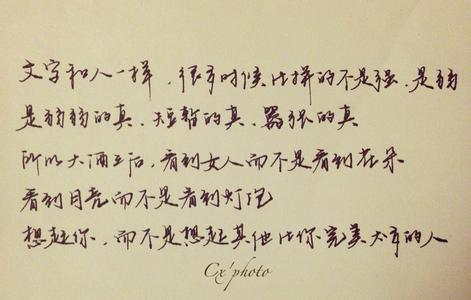 文字和人一样，很多时候比拼的不是强，是弱
是弱弱的真、短暂的真、嚣张的真
所以大酒之后，看到女人而不是看到花朵
看到月亮而不是看到灯泡
想起你，而不是想起其他比你完美太多的人
Cx'photo